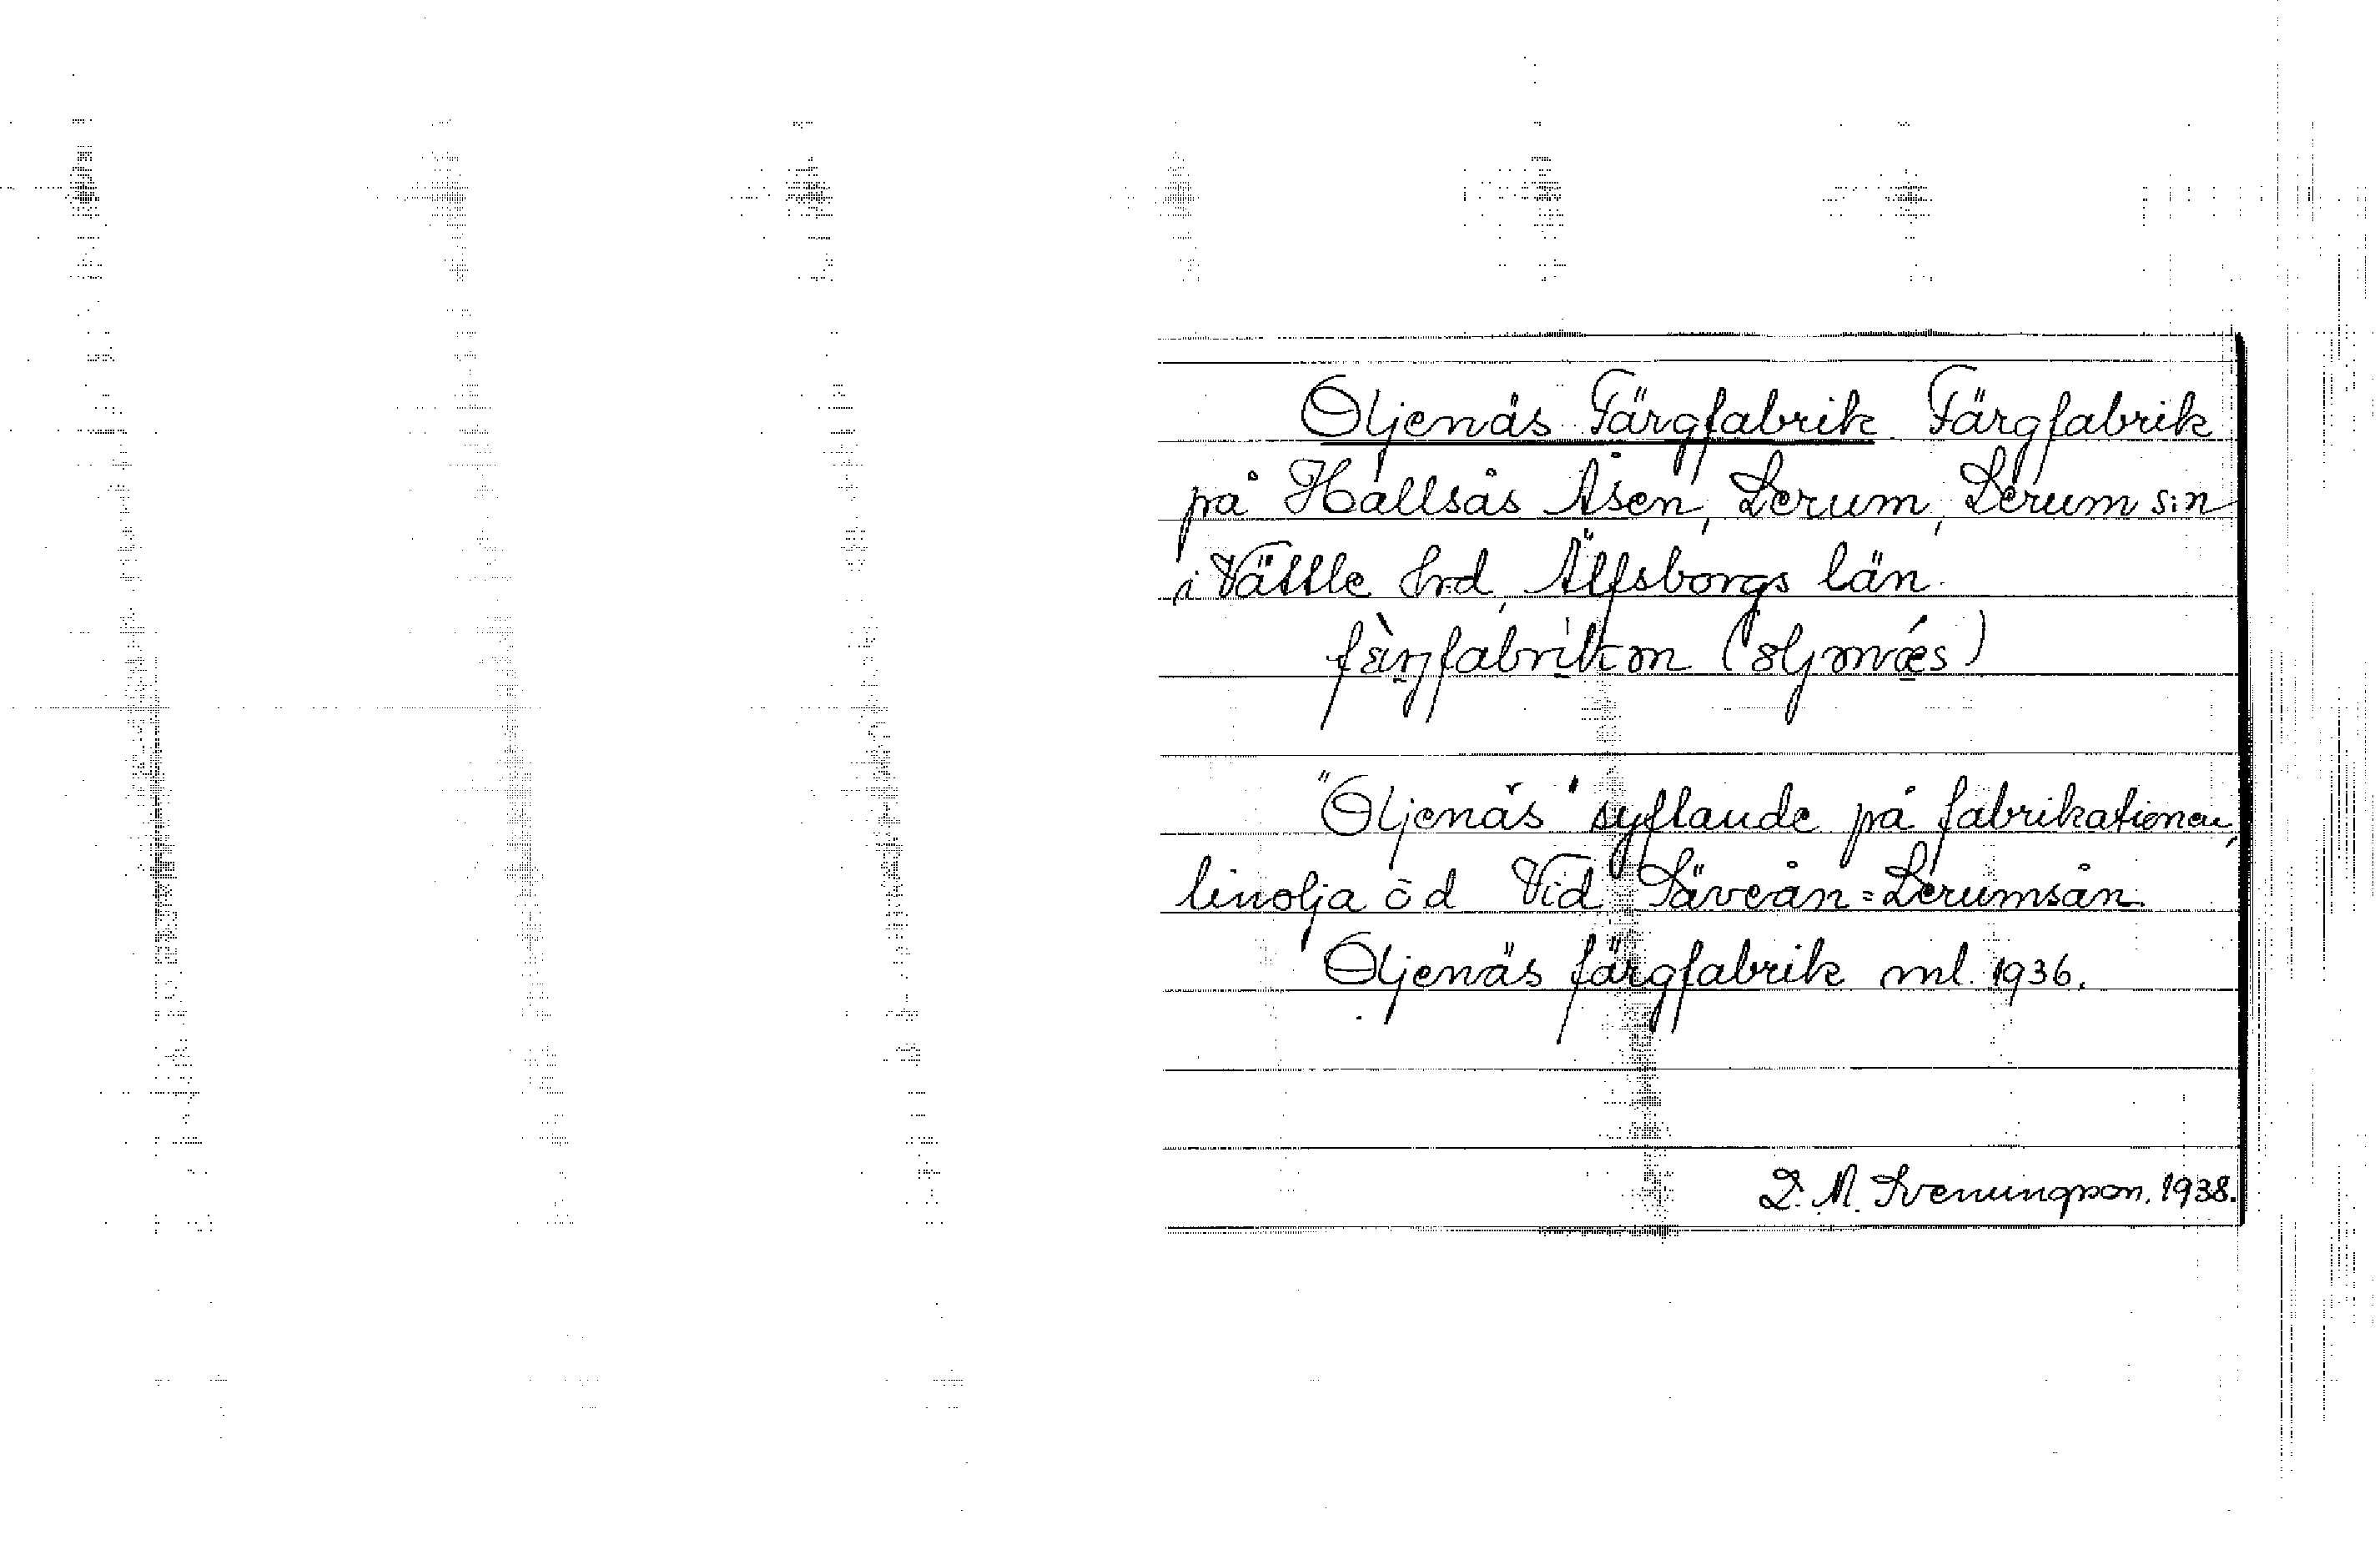 Oljenäs Färgfabrik Färgfabrik
på Hallsås Åsen, Lerum, Lerum sin
i Vättle hrd, Älfsborgs län.
"Oljenäs" syftande på fabrikationen,
linolja o d Vid Säveån=Lerumsån.
Oljenäs färgfabrik ml. 1936.
D. M. Svenungsson. 1938.